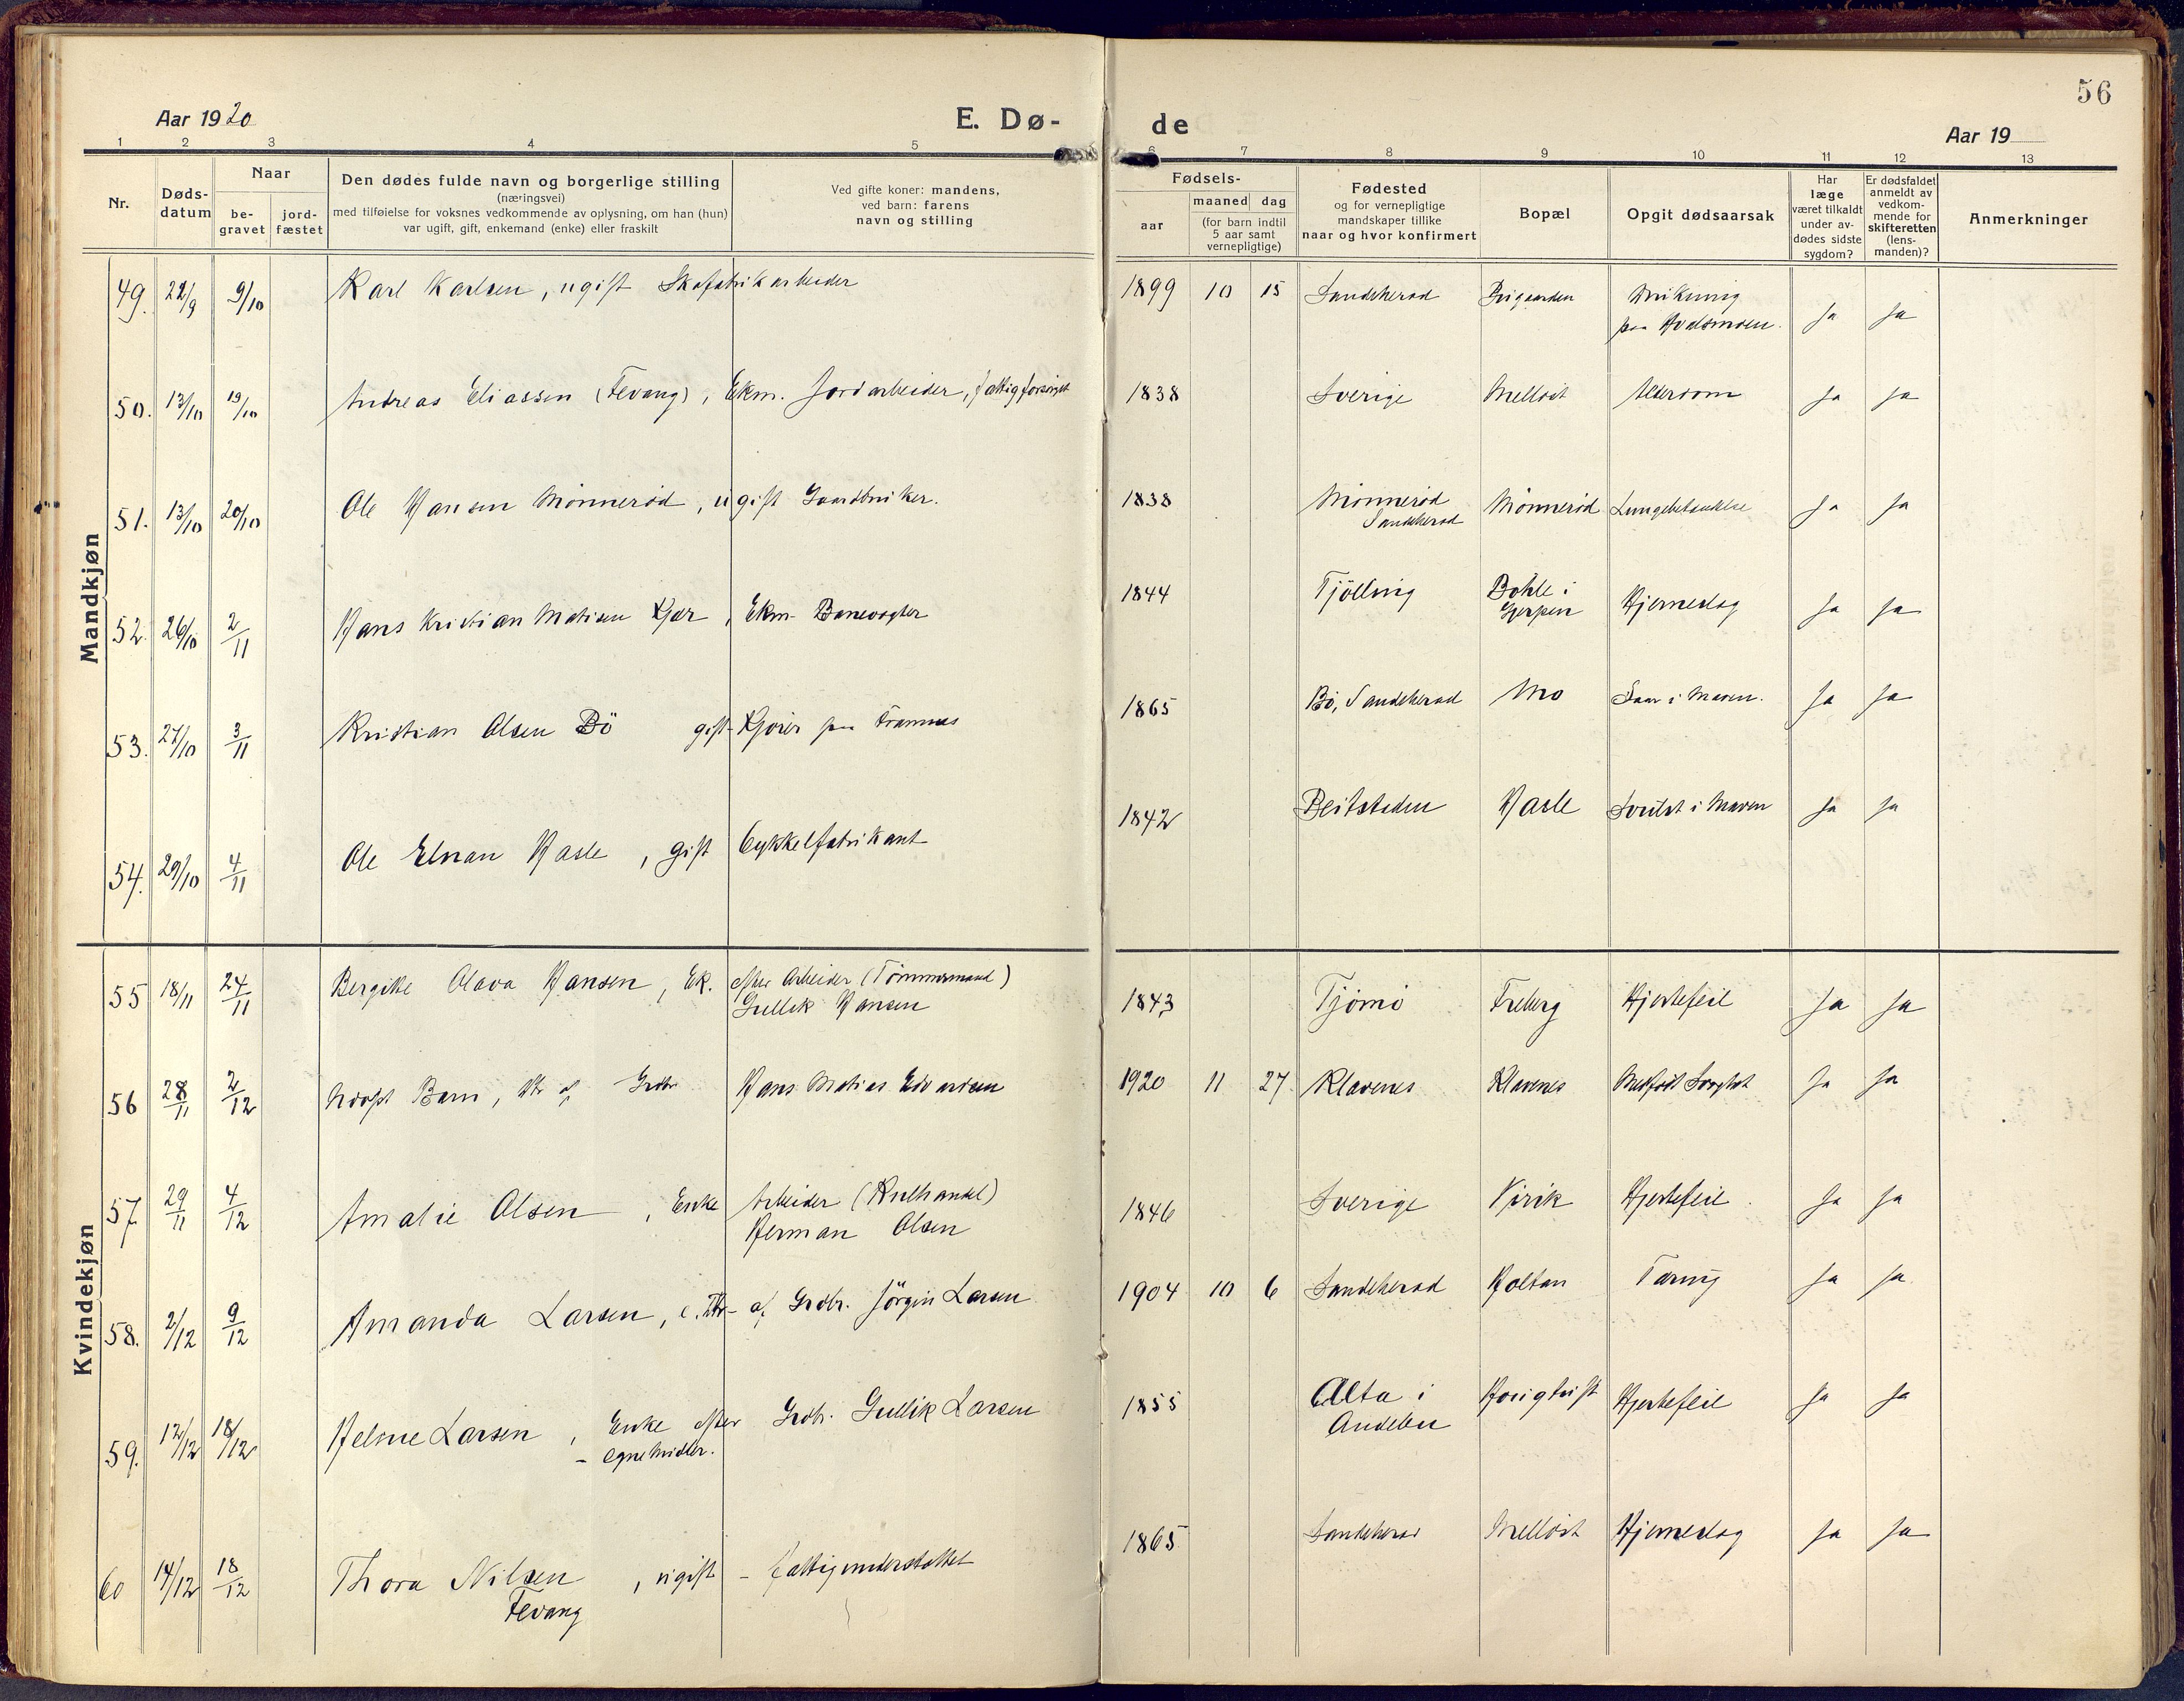 56
Aar 1920
E. Dø-
de
Aar 19
1 2 3 4 5 6 7 8 9 10 11 12 13
Nr.
Døds-
datum
Naar
be-
gravet
jord-
fæstet
Den dødes fulde navn og borgerlige stilling
(næringsvei)
med tilføielse for voksnes vedkommende av oplysning, om han (hun)
var ugift, gift, enkemand (enke) eller fraskilt
Ved gifte koner: mandens,
ved barn: farens
navn og stilling
Fødsels-
aar
maaned dag
(for barn indtil
5 aar samt
vernepligtige)
Fødested
og for vernepligtige
mandskaper tillike
naar og hvor konfirmert
Bopæl
Opgit dødsaarsak
Har
læge
været tilkaldt
under av-
dødes sidste
sygdom?
Er dødsfaldet
anmeldt av
vedkom-
mende for
skifteretten
(lens-
manden)?
Anmerkninger
Mandkjøn
49. 22/9 9/10 Karl Karlsen, ugift Skofabrikarbeider 1899 10 15 Sandeherad
paa ja ja
50. 13/10 19/10 Andreas Eliassen (Fevang), Ekm. Jordarbeider, fattigforsörget 1838 Sverige Melløst Alderdom ja ja
51. 13/10 20/10 Ole Hansen Mönneröd, ugift Gaardbruker. 1838 Mönneröd Mönneröd Lungebetændelse ja ja
Sandeherad
52. 26/10 2/11 Hans Kristian Matisen Kjær, Ekm. Banevogter 1844 Tjölling Böhle i Hjerneslag ja ja
Gjerpen
53. 27/10 3/11 Kristian Olsen Bö gift- Kjörer paa Framnæs 1865 Bö, Sandeherad Mo Saar i Maven. ja ja
54. 29/10 4/11 Ole Elnan Hasle, gift Cykkelfabrikant 1842 Beitstaden Hasle Svulst i Maven ja ja
Kvindekjøn
55 18/11 24/11 Bergitte Olava Hansen, Ek. efter Arbeider (Tömmermand) 1843 Tjömö Freberg Hjertefeil ja ja
Gullik Hansen
56 28/11 2/12 Udöpt Barn, Dtr af Grdbr. Hans Matias Edvardsen 1920 11 27 Klavenes Klavenes Medfödt Svaghet ja ja
57. 29/11 4/12 Amalie Olsen, Enke Arbeider (Kulhandel) 1846 Sverige Virik Hjertefeil. ja ja
Herman Olsen
58. 2/12 9/12 Amanda Larsen, e. Dtr- af Grdbr. Jörgin Larsen 1904 10 6 Sandeherad Holtan Tæring ja ja.
59. 12/12 18/12 Helene Larsen, Enke efter Grdb. Gullik Larsen 1855 i Hjertefeil ja ja
- egne Midler.
Andebu
60 14/12 18/12 Thora Nilsen, ugift - fattigunderstöttet 1865 Sandeherad Melløst Hjerneslag ja ja
Fevang